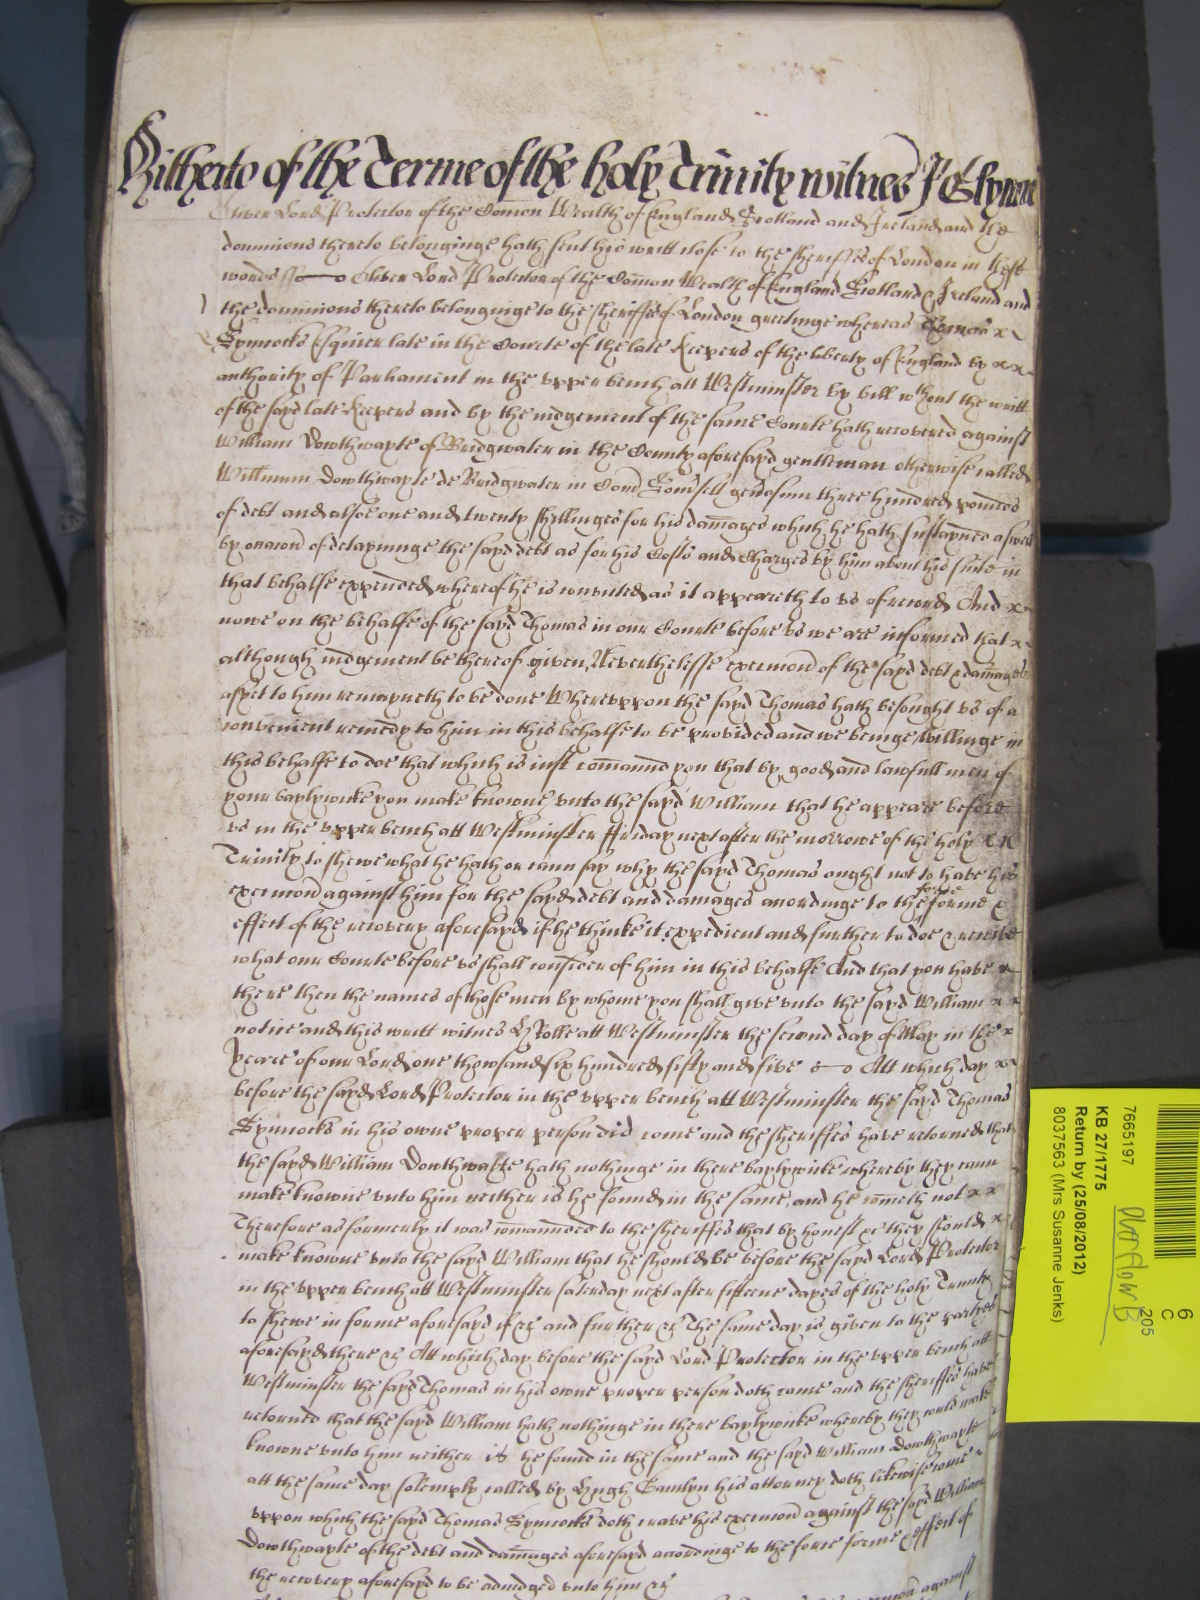 Hitherto of the Terme of the holy Trinity witnes J Glynne
Oliver Lord Protector of the Comon Wealth of England Scotland and Ireland and the
dominions thereto belonginge hath sent his writt close to the sheriffes of London in these
words ss Oliver Lord Protector of the Comon Wealth of England Scotland & Ireland and
the dominions thereto belonginge to the sheriffes of London greetinge whereas Thomas x
Symcocks Esquier late in the Courte of the late Keepers of the liberty of England by xx
authority of Parliament in the upper bench att Westminster by bill wthout the writt
of the sayd late Keepers and by the iudgement of the same Courte hath recovered against
William Dowthwayte of Bridgwater in the County aforesayd gentleman otherwise called
Willmum Dowthwayte de Bridgwater in Com Somersett generosum three hundred pounds
of debt and alsoe one and twenty shillinges for his damages which he hath sustayned aswell
by occasion of detayninge the sayd debt as for his Costs and Charges by him about his suite in
that behalfe expended whereof he is convicted as it appeareth to us of record And x
nowe on the behalfe of the sayd Thomas in our Courte before us we are informed that x
although iudgement be thereof given, Neverthelesse execucion of the sayd debt & damages
as yet to him remayneth to be done Whereuppon the sayd Thomas hath besought us of a
convenient remedy to him in this behalfe to be provided and we beinge willinge in
this behalfe to doe that which is iust comaund you that by good and lawfull men of
your baylywicke you make knowne unto the sayd William that he appeare before
us in the upper bench att Westminster ffriday next after the morrowe of the holy x x
Trinity to shewe what he hath or cann say why the sayd Thomas ought not to have his
execucion against him for the sayd debt and damages accordinge to the force forme &
effect of the recovery aforesayd if he thinke it expedient and further to doe & receive
what our Courte before us shall consider of him in this behalfe And that you have x
there then the names of those men by whome you shall give unto the sayd William x x
notice and this writt witnes H Rolle att Westminster the second day of May in the x
yeare of our Lord one thowsand six hundred fifty and five Att which day x
before the sayd Lord Protector in the upper bench att Westminster the sayd Thomas
Symcocks in his owne proper person did come and the sheriffes have retorned that
the sayd William Dowthwayte hath nothinge in there baylywicke whereby they cann
make knowne unto him neither is he found in the same, and he cometh not x x
Therefore as formerly it was comaunded to the sheriffes that by honest &c they should x
make knowne unto the sayd William that he should be before the sayd Lord Protector
in the upper bench att Westminster saterday next after fifteene dayes of the holy Trinity
to shewe in forme aforesayd if &c and further &c The same day is given to the partyes
aforesayd there &c Att which day before the sayd Lord Protector in the upper bench att
Westminster the sayd Thomas in his owne proper person doth come and the sheriffes have
retorned that the sayd William hath nothinge in there baylywicke whereby they could make
knowne unto him neither is he found in the same and the sayd William Dowthwayte
att the same day solemply called by Hugh his attorney doth likewise come
uppon which the sayd Thomas Symcocks doth crave his execucion against the sayd William
Dowthwayte of the debt and damages aforesayd accordinge to the force forme & effect of
the recovery aforesayd to be adiudged unto him &c
against
7665197
KB 27/1775
Return by (25/08/2012)
8037563 (Mrs Susanne Jenks)
6
C
205